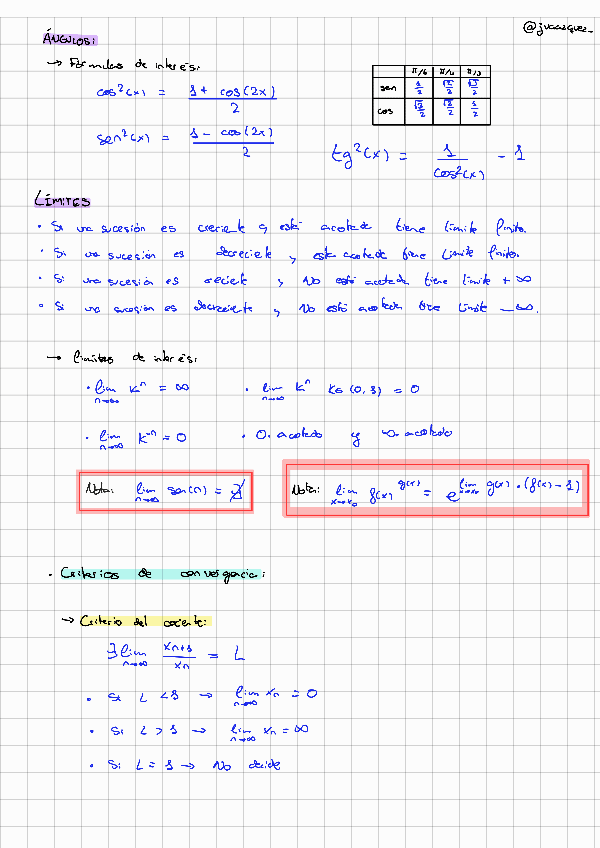 @jvcazquez_
ÁNGULOS:
→ Fórmulas de interés:
cos²(x) = (1 + cos(2x)) / 2
sen²(x) = (1 - cos(2x)) / 2
π/6 π/4 π/3
sen 1/2 √2/2 √3/2
cos √3/2 √2/2 1/2
tg²(x) = 1 / cos²(x) - 1
LÍMITES
• Si una sucesión es creciente y está acotada tiene límite finito.
• Si una sucesión es decreciente y está acotada tiene límite finito.
• Si una sucesión es creciente y NO está acotada tiene límite + ∞
• Si una sucesión es decreciente y NO está acotada tiene límite - ∞.
→ Límites de interés:
• lim n→∞ kⁿ = ∞ • lim n→∞ kⁿ k∈(0,1) = 0
• lim n→∞ k⁻ⁿ = 0 • 0. acotado y
Nota: lim n→∞ sen(n) = ∄
Nota: lim x→x₀ f(x)^g(x) = e^(lim x→x₀ g(x)·(f(x)-1))
• Criterios de convergencia:
→ Criterio del cociente:
∃ lim n→∞ xn+1 / xn = L
• Si L < 1 → lim n→∞ xn = 0
• Si L > 1 → lim n→∞ xn = ∞
• Si L = 1 → No decide